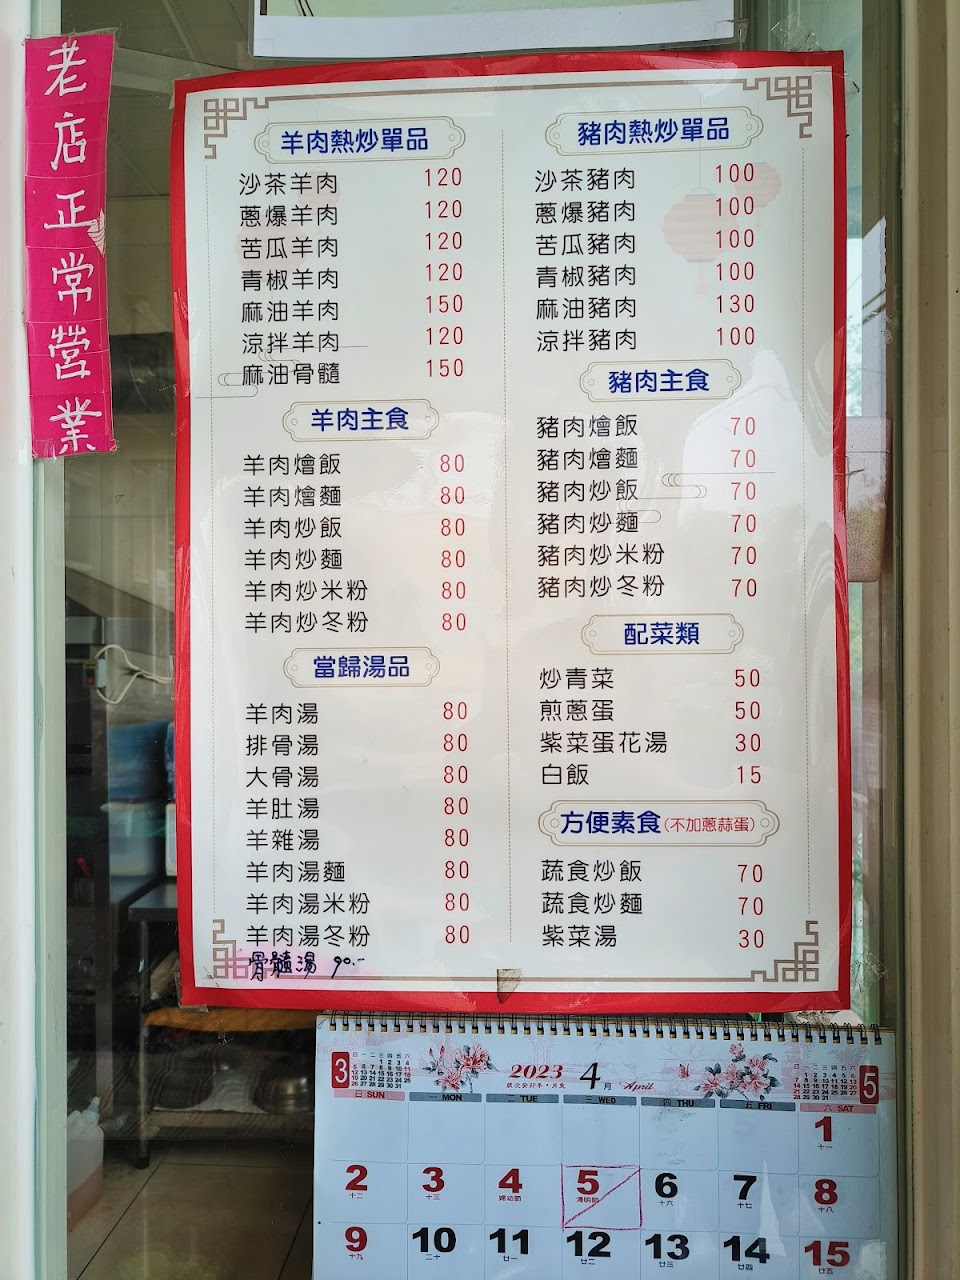 老店正常營業
羊肉熱炒單品
沙茶羊肉 120
蔥爆羊肉 120
苦瓜羊肉 120
青椒羊肉 120
麻油羊肉 150
涼拌羊肉 120
麻油骨髓 150
羊肉主食
羊肉燴飯 80
羊肉燴麵 80
羊肉炒飯 80
羊肉炒麵 80
羊肉炒米粉 80
羊肉炒冬粉 80
當歸湯品
羊肉湯 80
排骨湯 80
大骨湯 80
羊肚湯 80
羊雜湯 80
羊肉湯麵 80
羊肉湯米粉 80
羊肉湯冬粉 80
骨髓湯 90.-
豬肉熱炒單品
沙茶豬肉 100
蔥爆豬肉 100
苦瓜豬肉 100
青椒豬肉 100
麻油豬肉 130
涼拌豬肉 100
豬肉主食
豬肉燴飯 70
豬肉燴麵 70
豬肉炒飯 70
豬肉炒麵 70
豬肉炒米粉 70
豬肉炒冬粉 70
配菜類
炒青菜 50
煎蔥蛋 50
紫菜蛋花湯 30
白飯 15
方便素食(不加蔥蒜蛋)
蔬食炒飯 70
蔬食炒麵 70
紫菜湯 30
3 2023 4月 April 5
日 SUN 一 MON 二 TUE 三 WED 四 THU 五 FRI 六 SAT
1
十一
2 3 4 5 6 7 8
十二 十三 婦幼節 清明節 十六 十七 十八
9 10 11 12 13 14 15
十九 二十 廿一 廿二 廿三 廿四 廿五